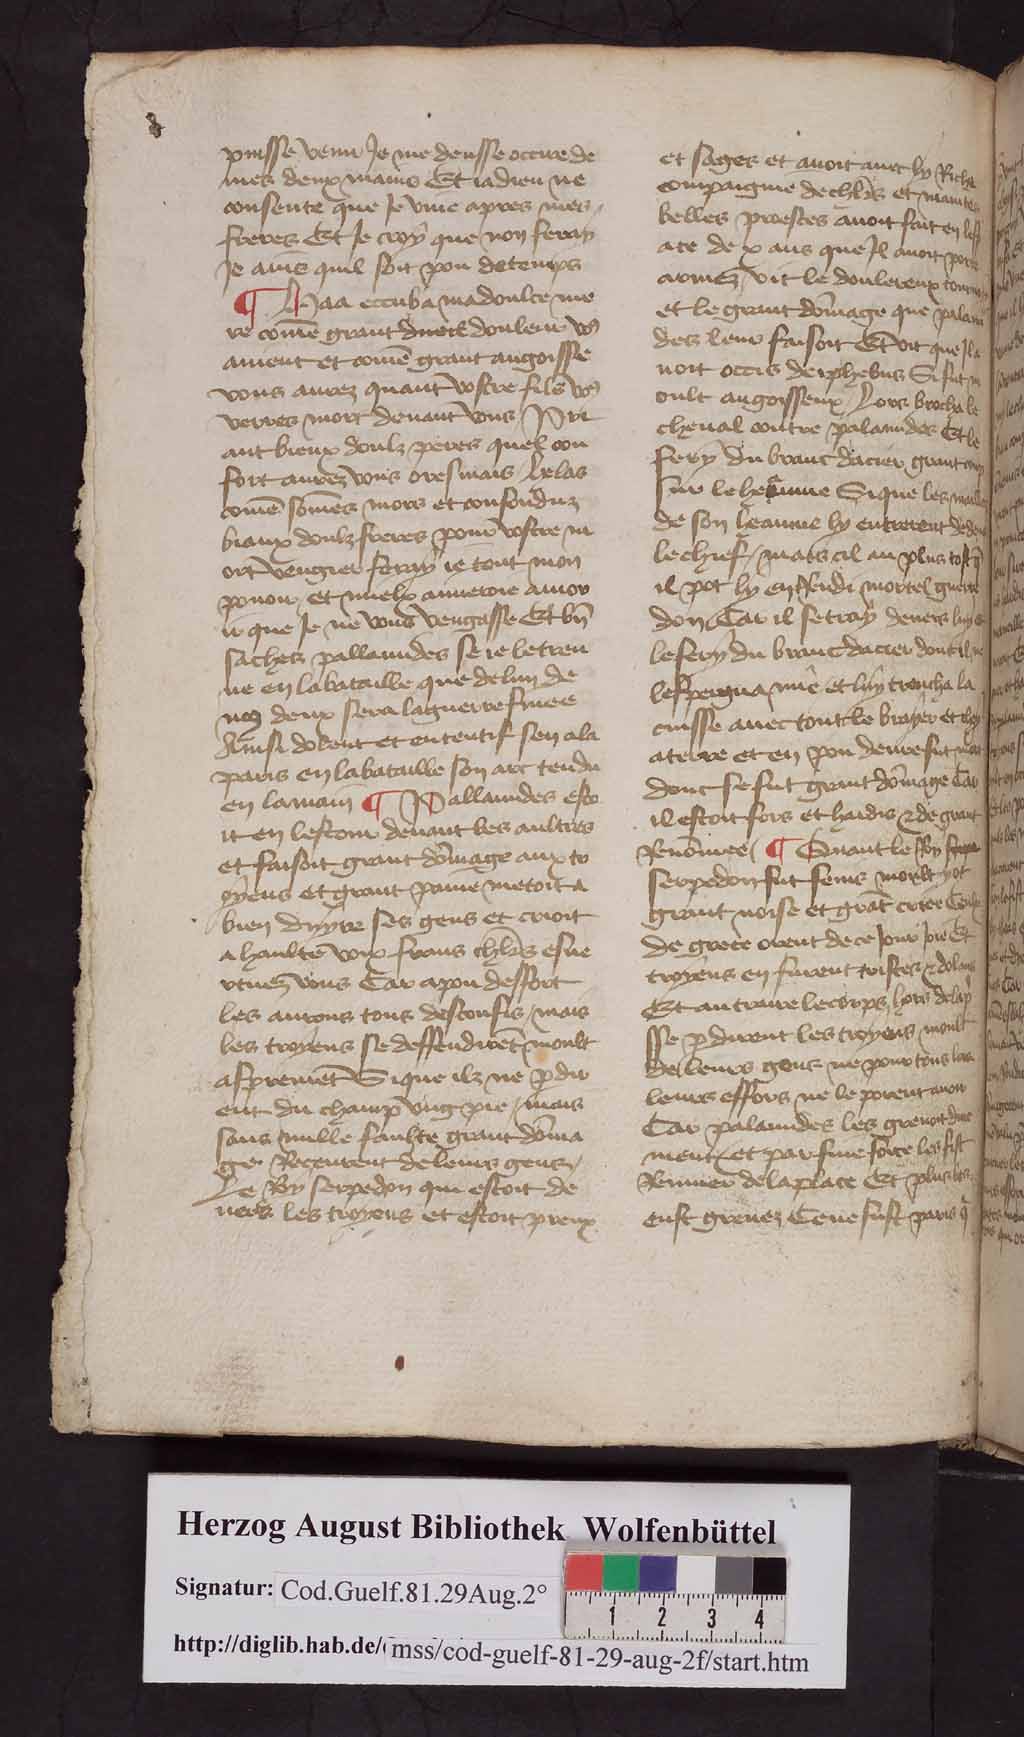 puisse venir Je me deusse occire de
mes deux mains Et ia dieu ne
consente que Je vive apres mes
freres Et Je croy que non feray
Je auis quil soit pou de temps
¶ Haa eccuba ma doulce me
re come grant dueil douleur vo9
auient et come grant angoisse
vous aurez quant vostre filz vo9
verres mort deuant vous / Pri
ant bieux doulz peres quel con
fort aurez vous oresmais helas
come somes mors et confonduz
biaux doulz freres pour vostre m
ort vengier feray ie tout mon
pouoir et mielx aimeroie mour
ir que Je ne vous vengasse Et bn
saches pallamides se ie le treu
ue en la bataille que de lun de
no9 deux sera la guerre finee
Ainsi dolent et ententif sen ala
paris en la bataille son arc tendu
en la main ¶ Pallamides esto
it en lestour deuant les aultres
et faisoit grant domage aux tr
oyens et grant paine metoit a
bien duyre ses gens et crioit
a haulte voix frans chlrs esue
rtuez vous Car a pou deffort
les aurons tous desconfis / mais
les troyens se deffendiret moult
aspremet Si que ilz ne pdir
ent du champ ung pie / mais
sans nulle faulte grant doma
ge Receurent de leurs gens /
Le Roy serpedon qui estoit de
uers les troyens et estoit preux
et sages et auoit auec ly Riche
compaignie de chlrs et maintes
belles proestes auoit fait en lesp
ace de x ans que Il auoit porte
armes / vit le douleureux tourment
et le grant domage que palami
des leur faisoit Et vit que Il a
uoit occis deiphebus Si fut m
oult angoisseux / Lors brocha le
cheual contre palamides Et le
fery du branc dacier grant coup
sur le heaume Si que les mailles
de son heaume ly entrerent dedens
le chief / mais cil au plus tost q
il pot ly en rendi mortel guerre
don Car il se tray deuers luy et
le fery du branc dacier dont il ne
lespergna mie et luy trencha la
cuisse auec tout le brayer et chey
a terre et en pou deure fut mort
dont se fut grant domage Car
il estoit fors et hardis et de grant
Renomee / ¶ Quant le Roy
serpedon fut fenis moult y ot
grant noise et grat criee Ceulx
de grece orent de ce Jour Joie Et
troyens en furent tristes et dolans
Et au traire le corps hors de la p
sse pdirent les troyens moult
de leurs gens ne pour tous
leurs effors ne le porent auoir
Car palamides les greuoit dure
ment et par fine force les fist
Remuer de la place Et plus les
eust greuez Ce ne fust paris q
Herzog August Bibliothek Wolfenbüttel
Signatur: Cod.Guelf.81.29Aug.2°
1 2 3 4
http://diglib.hab.de/ mss/cod-guelf-81-29-aug-2f/start.htm